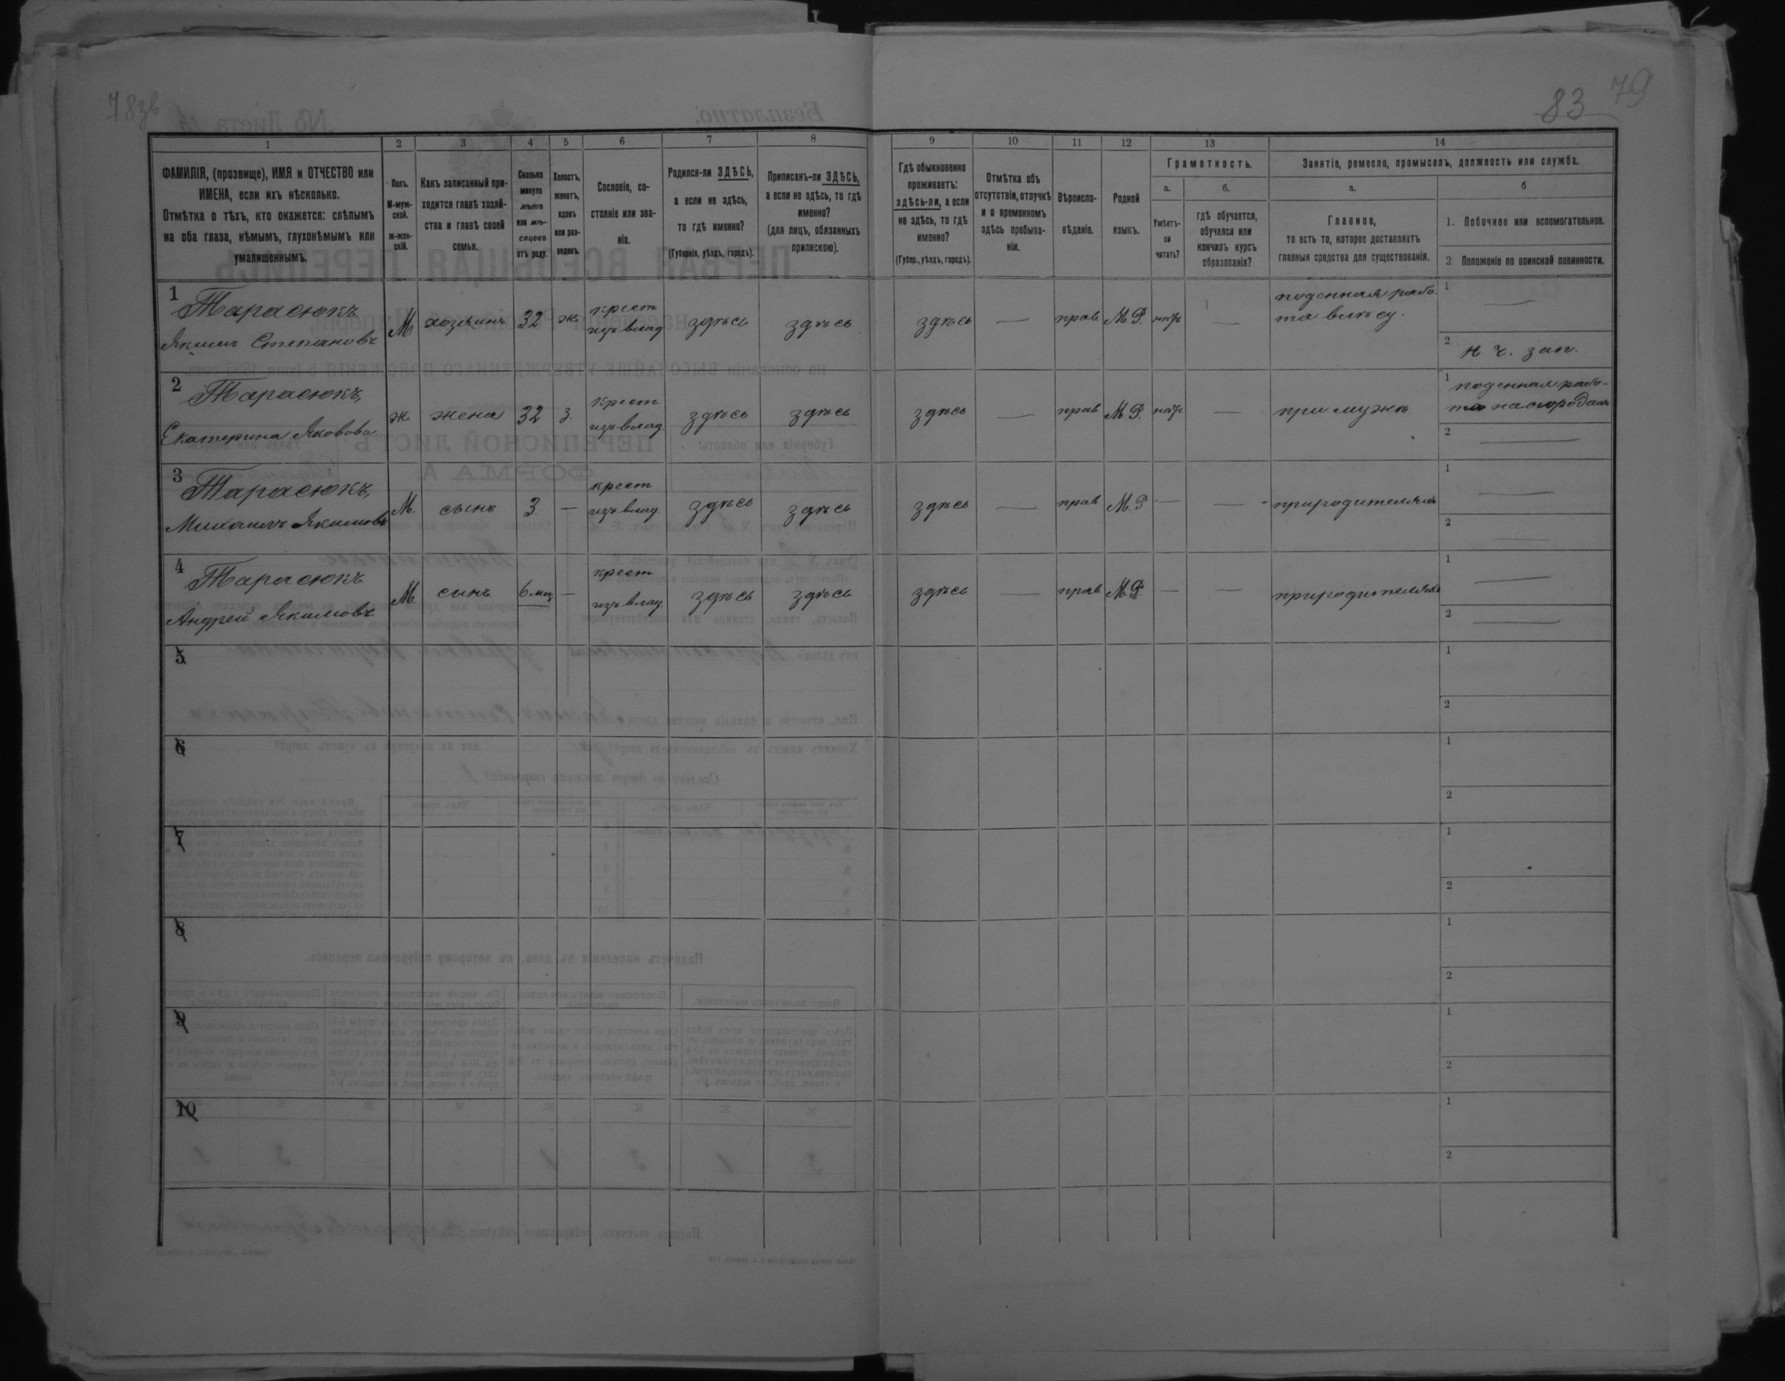 78об
83 79
1 2 3 4 5 6 7 8 9 10 11 12 13 14
ФАМИЛІЯ, (прозвище), ИМЯ и ОТЧЕСТВО или
ИМЕНА, если ихъ нѣсколько.
Отмѣтка о тѣхъ, кто окажется: слѣпымъ
на оба глаза, нѣмымъ, глухонѣмымъ или
умалишеннымъ.
Полъ.
М-муж-
ской.
ж-жен-
скій.
Какъ записанный при-
ходится главѣ хозяй-
ства и главѣ своей
семьи.
Сколько
минуло
лѣтъ
или мѣ-
сяцевъ
отъ роду.
Холостъ,
женатъ,
вдовъ
или раз-
веденъ.
Сословіе, со-
стояніе или зва-
ніе.
Родился-ли ЗДѢСЬ,
а если не здѣсь,
то гдѣ именно?
(Губернія, уѣздъ, городъ).
Приписанъ-ли ЗДѢСЬ,
а если не здѣсь, то гдѣ
именно?
(для лицъ, обязанныхъ
припискою).
Гдѣ обыкновенно
проживаетъ:
здѣсь-ли, а если
не здѣсь, то гдѣ
именно?
(Губер., уѣздъ, городъ).
Отмѣтка объ
отсутствіи, отлучкѣ
и о временномъ
здѣсь пребыва-
ніи.
Вѣроиспо-
вѣданіе.
Родной
языкъ.
Грамотность.
а.
Умѣетъ-
ли
читать?
б.
гдѣ обучается,
обучался или
кончилъ курсъ
образованія?
Занятіе, ремесло, промыселъ, должность или служба.
а.
Главное,
то есть то, которое доставляетъ
главныя средства для существованія.
б
1. Побочное или вспомогательное.
2 Положеніе по воинской повинности.
1 Тарасюкъ
Якимъ Степановъ
М хозяинъ 32 ж.
крест
изъ влад
здѣсь здѣсь здѣсь — прав М.Р. нѣтъ —
поденная рабо-
та въ лѣсу.
1 —
2 н. ч. зап.
2 Тарасюкъ,
Екатерина Яковова
ж. жена 32 з.
крест
изъ влад
здѣсь здѣсь здѣсь — прав М.Р. нѣтъ —
при мужѣ
1 поденная рабо-
та на огородахъ
2 —
3 Тарасюкъ,
Михаилъ Якимовъ
М. сынъ 3 —
крест
изъ влад.
здѣсь здѣсь здѣсь — прав М.Р — —
при родителяхъ
1 —
2 —
4 Тарасюкъ
Андрей Якимовъ
М. сынъ 6 мц —
крест
изъ влад
здѣсь здѣсь здѣсь — прав М.Р. — —
при родителяхъ
1 —
2 —
5
1
2
6
1
2
7
1
2
8
1
2
9
1
2
10
1
2